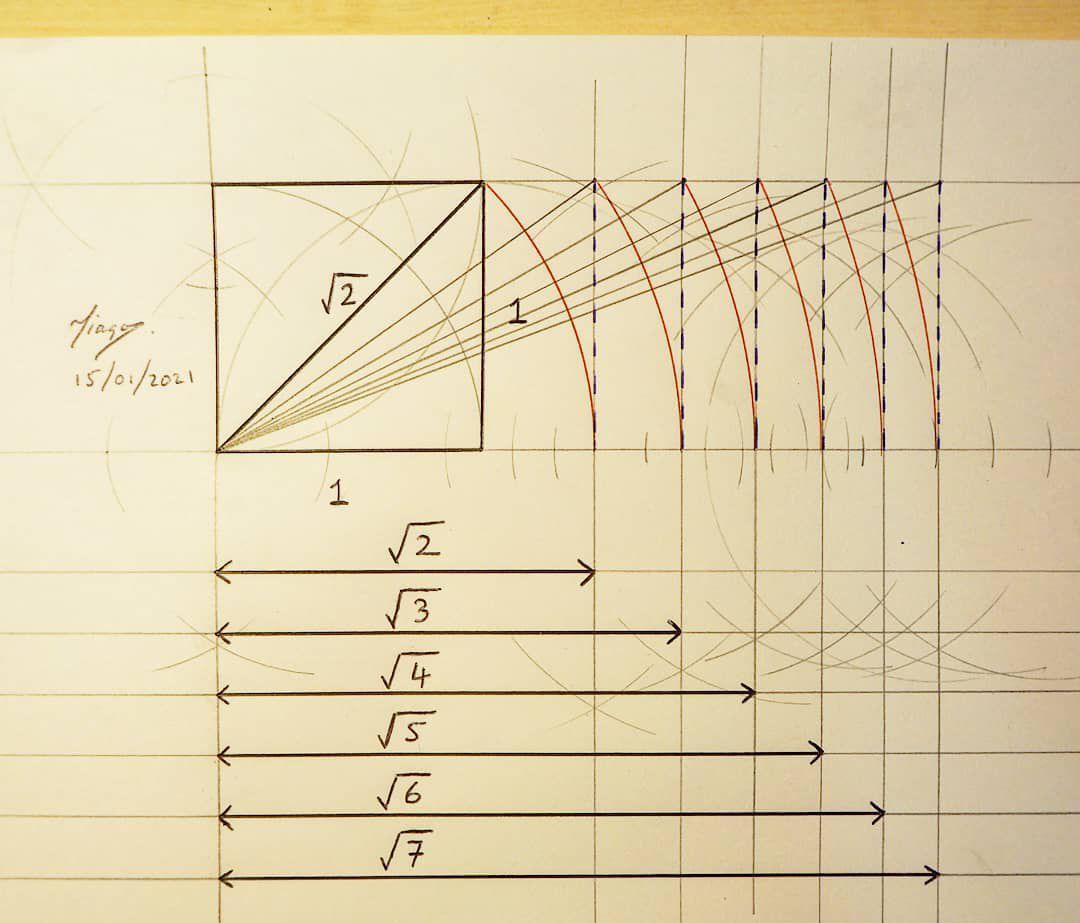 √2
1
Tiago.
15/01/2021
1
√2
√3
√4
√5
√6
√7